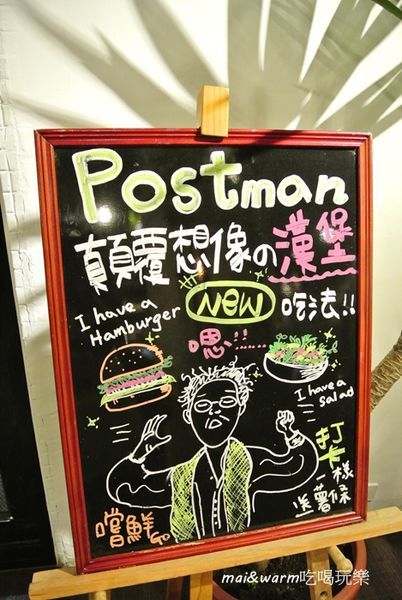 Postman
顛覆想像の漢堡
I have a
Hamburger
NEW
吃法!!
嗯!!......
I have a
salad
打卡
送薯條
嚐鮮Go
mai&warm吃喝玩樂